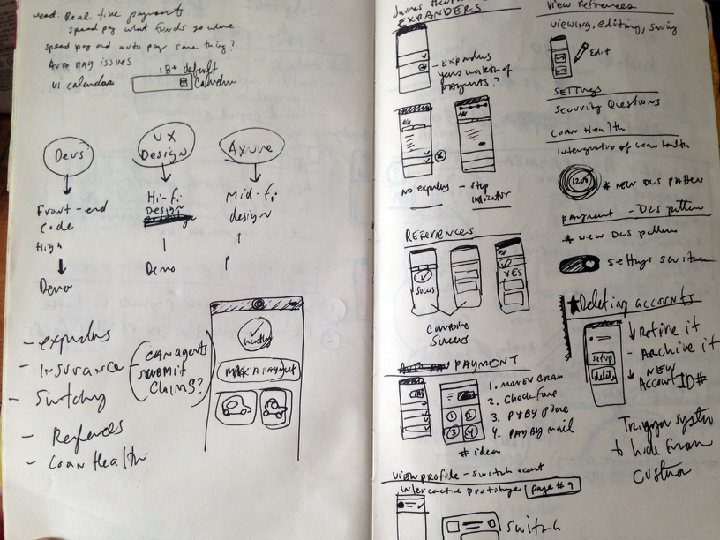 Real time payments
speed pay what funds
speed pay and auto pay same thing?
issues
UI calendar
18+ default
Calendar
Devs
UX Design
Axure
Front-end
code
High
Demo
Hi-fi
Design
Demo
Mid-fi
design
- expanders
- Insurance
- Switching
- References
- Loan Health
Can agents
submit
claims?
Make a payment
EXPANDERS
Expanding
your
payments?
no
- Step
indicator
REFERENCES
YES
Combine
Screens
PAYMENT
1. MoneyGram
2. Checkfree
3. Pay By phone
4. Pay By mail
# idea
View profile - switch
Interactive prototype page # 9
Switch
View References
Viewing, editing, saving
Edit
Settings
Security Questions
Loan Health
Integration of loan health
* New DLS pattern
payment - DLS pattern
* New DLS pattern
settings switch
★ Deleting accounts
setup
delete
Retire it
Archive it
New
Account ID#
Trigger system
to hide from
custom